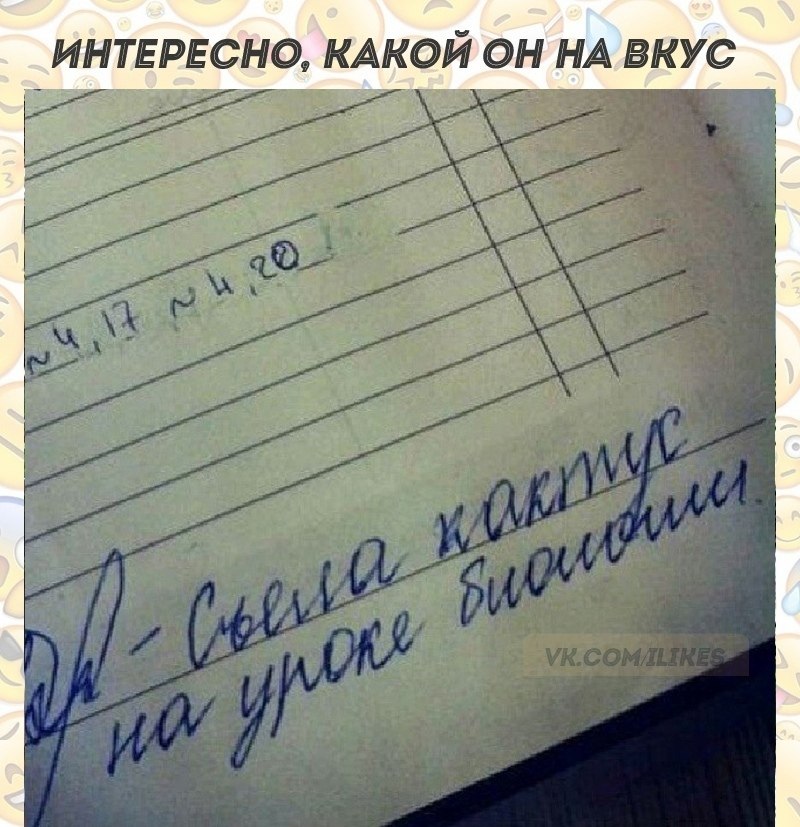 ИНТЕРЕСНО, КАКОЙ ОН НА ВКУС
~4,17 ~4,20
- Съела кактус
на уроке биологии.
VK.COM/ILIKES